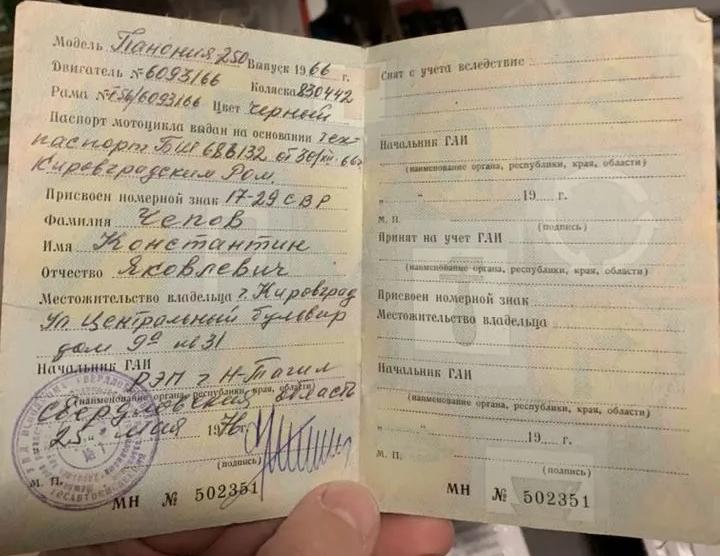 Модель Панония 250 Выпуск 1966 г.
Двигатель № 6093166 Коляска 830442
Рама № 6093166 Цвет черный
Паспорт мотоцикла выдан на основании тех-
паспорт БШ 688132 от 66г
Кировградским Ром.
Присвоен номерной знак 17-29 СВР
Фамилия Чепов
Имя Константин
Отчество Яковлевич
Местожительство владельца г. Кировград
Ул Центральный бульвар
дом 9а №31
Начальник ГАИ
РЭП г Н-Тагил
(наименование органа, республики, края, области)
Свердловская область
25 мая 1976г.
(подпись)
М. П.
МН № 502351
Снят с учета вследствие
Начальник ГАИ
(наименование органа, республики, края, области)
„ “ 19 г.
М. П.
(подпись)
Принят на учет ГАИ
(наименование органа, республики, края, области)
Присвоен номерной знак
Местожительство владельца
Начальник ГАИ
(наименование органа, республики, края, области)
„ “ 19 г.
М. П.
(подпись)
МН № 502351